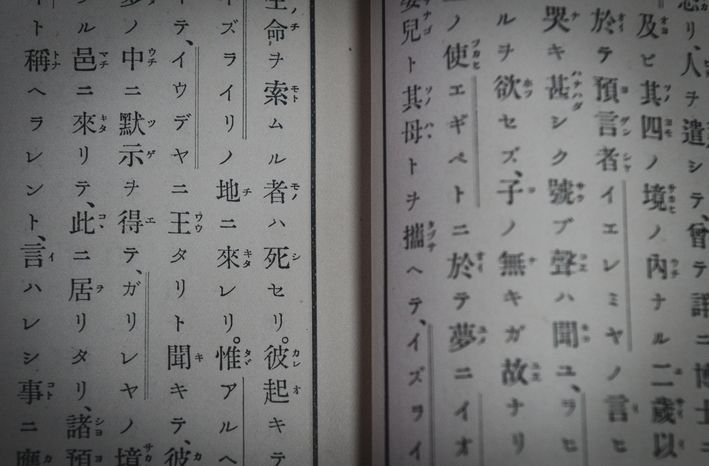 リ、人ヲ遣シテ、曾テ詳ニ博士ニ
及ビ其四ノ境ノ內ナル二歲以
於テ預言者イエレミヤノ言ヒ
哭キ甚シク號ブ聲ハ聞ユ、ラヒ
ルヲ欲セズ、子ノ無キガ故ナリ
ノ使エギペトニ於テ夢ニイオ
兒ト其母トヲ攜ヘテ、イズライ
生命ヲ索ムル者ハ死セリ。彼起キテ
イズライリノ地ニ來レリ。惟アルヘ
テ、イウデヤニ王タリト聞キテ、彼
ノ中ニ默示ヲ得テ、ガリレヤノ境
ル邑ニ來リテ、此ニ居リタリ、諸預
ト稱ヘラレント、言ハレシ事ニ應